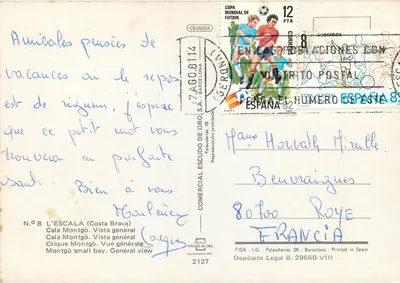 Amicales pensées de
vacances où le repos
est de rigueur. J'espère
que ce petit mot vous
trouvera en parfaite
santé. Bien à vous
Marlène
Jacques
N.º 8 L'ESCALA (Costa Brava)
Cala Montgó. Vista general
Cala Montgó. Vista general
Crique Montgó. Vue générale
Montgó small bay. General view
CEDOSA
COMERCIAL ESCUDO DE ORO, S.A.
Palaudarias, 26 - BARCELONA
ESCUDO DE ORO
2127
COPA
MUNDIAL DE
FUTBOL
12
PTA
ESPAÑA 82
8
ESPAÑA 8
7 AGO. 81 14
(GERONA)
EN LAS POBLACIONES CON
DISTRITO POSTAL
NUMERO DE ESTE
Mano Horvath Mireille
Benvraignes
80700 ROYE
FRANCIA
FISA - I.G. - Palaudarias, 26 - Barcelona - Printed in Spain
Depósito Legal B. 29660-VIII